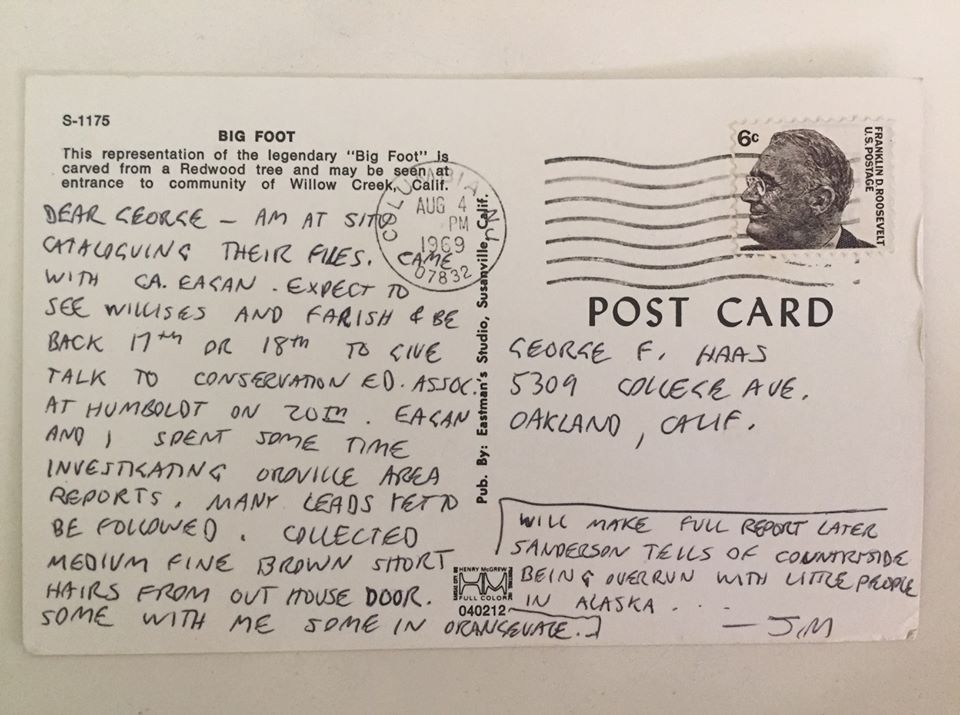 S-1175
BIG FOOT
This representation of the legendary "Big Foot" is
carved from a Redwood tree and may be seen at
entrance to community of Willow Creek, Calif.
DEAR GEORGE – AM AT SITU
CATALOGUING THEIR FILES. CAME
WITH GA. EAGAN. EXPECT TO
SEE WILLISES AND FARISH & BE
BACK 17TH OR 18TH TO GIVE
TALK TO CONSERVATION ED. ASSOC.
AT HUMBOLDT ON 20TH. EAGAN
AND I SPENT SOME TIME
INVESTIGATING OROVILLE AREA
REPORTS. MANY LEADS YET TO
BE FOLLOWED. COLLECTED
MEDIUM FINE BROWN SHORT
HAIRS FROM OUT HOUSE DOOR.
SOME WITH ME SOME IN ORANGEVALE.
COLUMBIA, NJ
AUG 4
PM
1969
07832
Pub. By: Eastman's Studio, Susanville, Calif.
HENRY McGREW
HM
FULL COLOR
040212
6c
FRANKLIN D. ROOSEVELT
U.S. POSTAGE
POST CARD
GEORGE F. HAAS
5309 COLLEGE AVE.
OAKLAND, CALIF.
WILL MAKE FULL REPORT LATER
SANDERSON TELLS OF COUNTRYSIDE
BEING OVERRUN WITH LITTLE PEOPLE
IN ALASKA . . .
— J.M